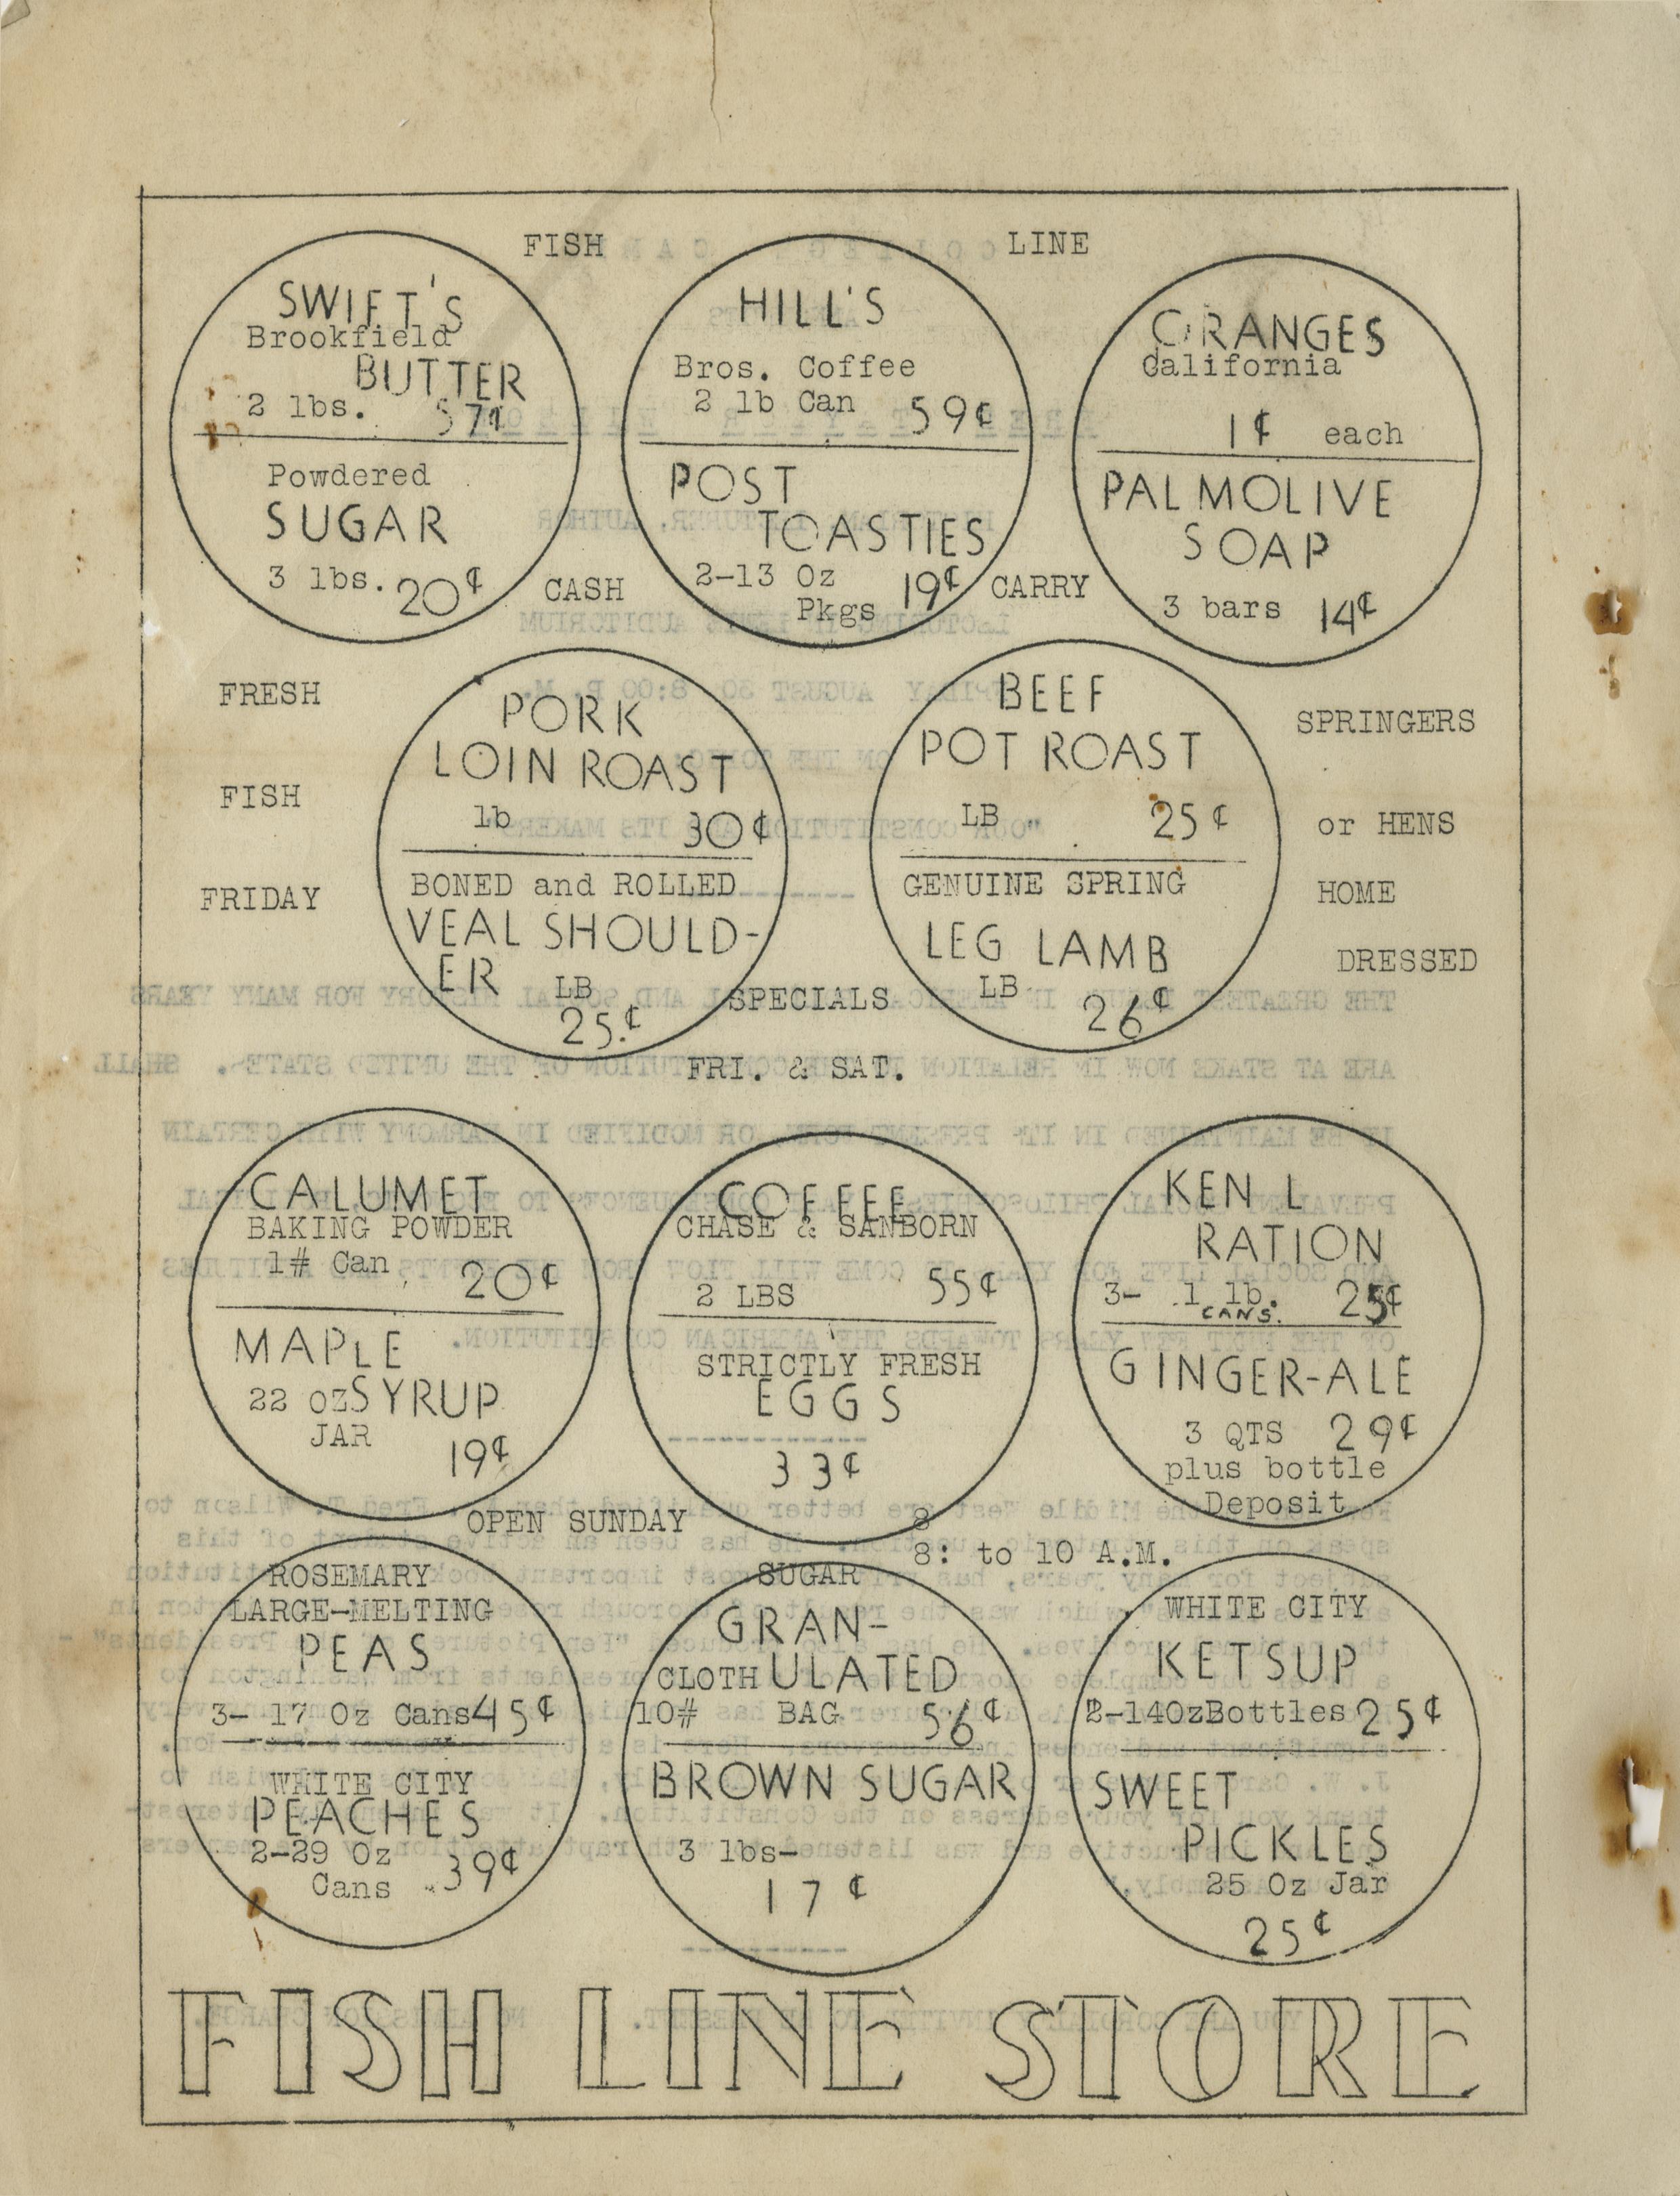 FISH LINE
SWIFT'S
Brookfield
BUTTER
2 lbs. 57¢
Powdered
SUGAR
3 lbs. 20¢
HILL'S
Bros. Coffee
2 lb Can 59¢
POST
TOASTIES
2-13 Oz
Pkgs 19¢
ORANGES
California
1¢ each
PALMOLIVE
SOAP
3 bars 14¢
CASH CARRY
FRESH
FISH
FRIDAY
PORK
LOIN ROAST
lb 30¢
BONED and ROLLED
VEAL SHOULD-
ER LB
25¢
BEEF
POT ROAST
LB 25¢
GENUINE SPRING
LEG LAMB
LB 26¢
SPRINGERS
or HENS
HOME
DRESSED
SPECIALS
FRI. & SAT.
CALUMET
BAKING POWDER
1# Can 20¢
MAPLE
22 oz SYRUP
JAR
19¢
COFFEE
CHASE & SANBORN
2 LBS 55¢
STRICTLY FRESH
EGGS
33¢
KEN L
RATION
3- 1 lb. 25¢
CANS.
GINGER-ALE
3 QTS 29¢
plus bottle
Deposit
OPEN SUNDAY 8
8: to 10 A.M.
ROSEMARY
LARGE-MELTING
PEAS
3- 17 Oz Cans 45¢
WHITE CITY
PEACHES
2-29 Oz
Cans 39¢
SUGAR
GRAN-
CLOTH ULATED
10# BAG 56¢
BROWN SUGAR
3 lbs-
17¢
WHITE CITY
KETSUP
2-14OzBottles 25¢
SWEET
PICKLES
25 Oz Jar
25¢
FISH LINE STORE